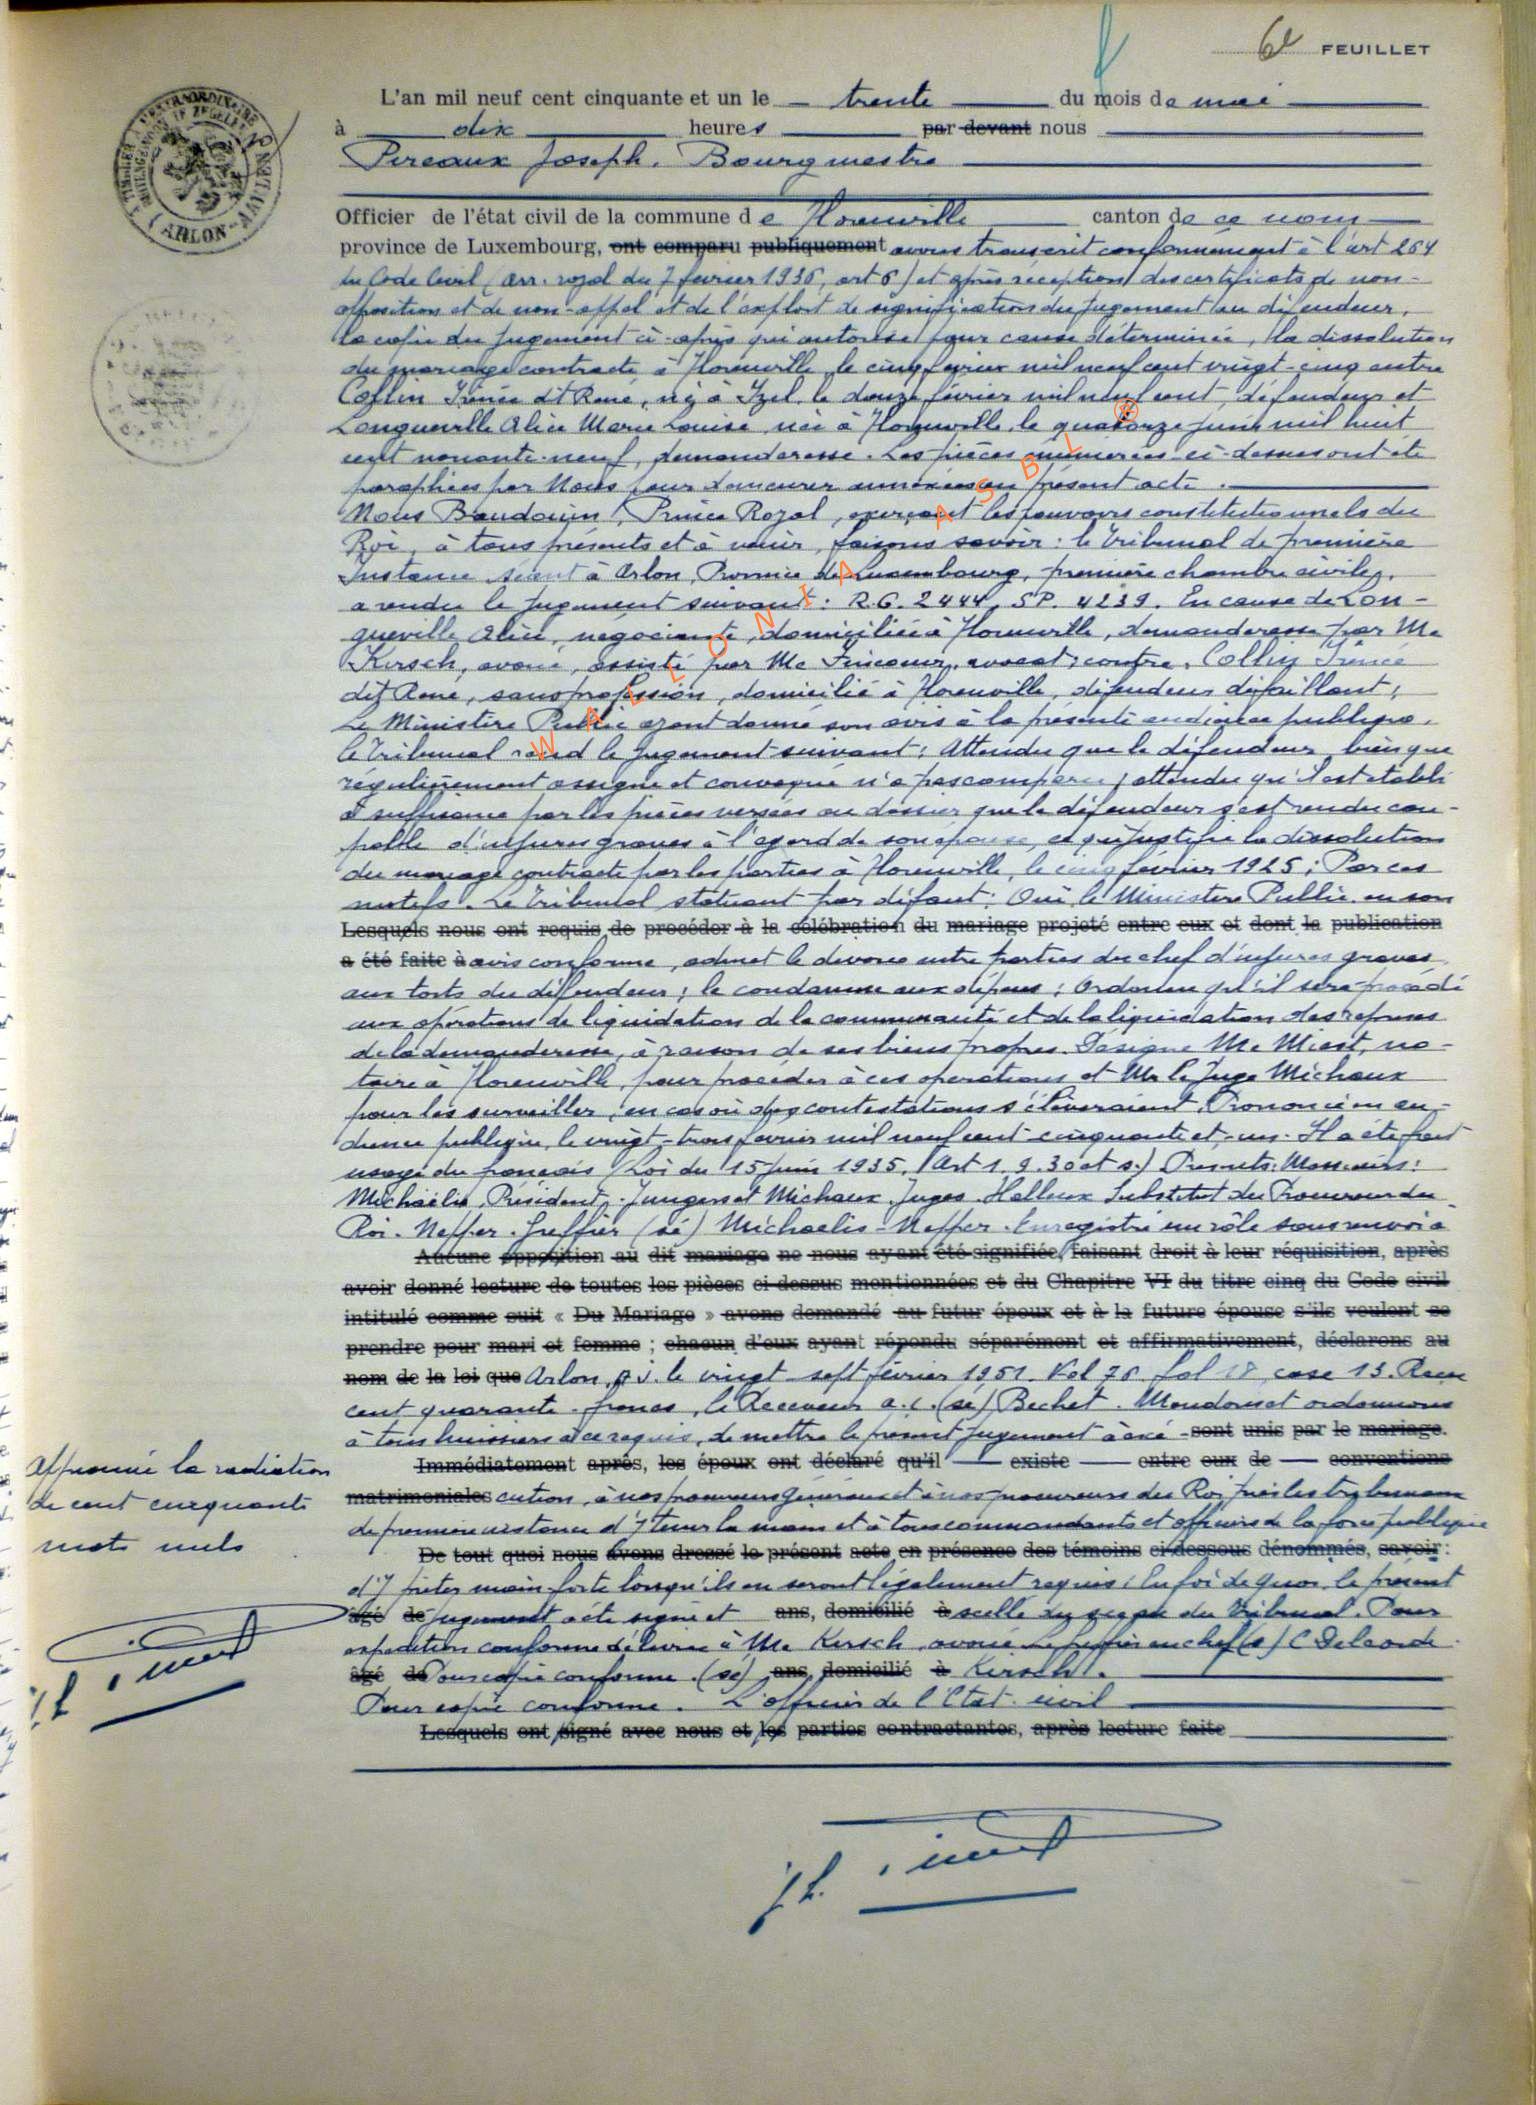 6e FEUILLET
L'an mil neuf cent cinquante et un le trente du mois de mai
à dix heures par devant nous
Pireaux Joseph. Bourgmestre
Officier de l'état civil de la commune de Florenville canton de ce nom
province de Luxembourg, ont comparu publiquement avons transcrit conformément à l'art 264
du Code Civil (Arr. royal du 7 février 1936, art 6) et après réception des certificats de non-
opposition et de non-appel et de l'exploit de signification du jugement au défendeur,
la copie du jugement ci-après qui autorise pour cause déterminée, la dissolution
du mariage contracté à Florenville le cinq février mil neuf cent vingt-cinq entre
Collin Irénée dit René, né à Izel, le douze février mil neuf cent, défendeur et
Longueville Alice Marie Louise née à Florenville, le quatorze juin mil huit
cent nonante-neuf, demanderesse. Les pièces énumérées ci-dessus ont été
paraphées par Nous pour demeurer annexées au présent acte.
Nous Baudouin, Prince Royal, exerçant les pouvoirs constitutionnels du
Roi, à tous présents et à venir, faisons savoir: le Tribunal de première
Instance séant à Arlon, Province de Luxembourg, première chambre civile,
a rendu le jugement suivant: R.G. 2444, SP. 4239. En cause de Lon-
gueville Alice, négociante, domiciliée à Florenville, demanderesse par Me
Kirsch, avoué, assisté par Me avocat; contre, Collin Irénée
dit René, sans profession, domicilié à Florenville, défendeur défaillant;
Le Ministère Public ayant donné son avis à la présente audience publique,
le Tribunal rend le jugement suivant: Attendu que le défendeur, bien que
régulièrement assigné et convoqué n'a pas comparu; attendu qu'il est établi
à suffisance par les pièces versées au dossier que le défendeur s'est rendu cou-
pable d'injures graves à l'égard de son épouse, ce qui justifie la dissolution
du mariage contracté par les parties à Florenville, le cinq février 1925; Par ces
motifs. Le Tribunal, statuant par défaut; Ouï, le Ministère Public en son
Lesquels nous ont requis de procéder à la célébration du mariage projeté entre eux et dont la publication
a été faite à avis conforme, admet le divorce entre parties du chef d'injures graves
aux torts du défendeur; le condamne aux dépens; Ordonne qu'il sera procédé
aux opérations de liquidation de la communauté et de la liquidation des reprises
de la demanderesse, à raison de ses biens propres. Désigne Me Miest, no-
taire à Florenville, pour procéder à ces opérations et Mr le Juge Michaux
pour les surveiller, en cas où des contestations s'élèveraient. Prononcé en au-
dience publique, le vingt-trois février mil neuf cent cinquante et-un. Il a été fait
usage du français (Loi du 15 juin 1935, (Art 1. 9. 30 et s.) Présents: Messieurs:
Michaëlis, Président, Jungers et Michaux, Juges. Halleux Substitut du Procureur du
Roi. Neffer. Greffier (sé) Michaelis - Neffer. Enregistré un rôle sans renvoi à
Aucune opposition au dit mariage ne nous ayant été signifiée, faisant droit à leur réquisition, après
avoir donné lecture de toutes les pièces ci dessus mentionnées et du Chapitre VI du titre cinq du Code civil
intitulé comme suit « Du Mariage » avons demandé au futur époux et à la future épouse s'ils veulent se
prendre pour mari et femme ; chacun d'eux ayant répondu séparément et affirmativement, déclarons au
nom de la loi que Arlon, A.J. le vingt-sept février 1951. Vol 76 fol 18 case 13. Reçu
cent quarante francs, le Receveur a.i. (sé) Bechet. Mandons et ordonnons
à tous huissiers à ce requis, de mettre le présent jugement à exé- sont unis par le mariage.
Immédiatement après, les époux ont déclaré qu'il existe entre eux de conventions
matrimoniales cution, à nos procureurs généraux et à nos procureurs du Roi près les tribunaux
de première instance d'y tenir la main et à tous commandants et officiers de la force publique
De tout quoi nous avons dressé le présent acte en présence des témoins ci-dessous dénommés, savoir :
d'y prêter main-forte lorsqu'ils en seront légalement requis. En foi de quoi, le présent
âgé de jugement a été signé et ans, domicilié à scellé du sceau du Tribunal. Pour
expédition conforme délivrée à Me Kirsch, avoué Le greffier en chef (s)
âgé de Pour copie conforme. (sé) ans, domicilié à Kirsch.
Pour copie conforme. L'officier de l'Etat-civil
Lesquels ont signé avec nous et les parties contractantes, après lecture faite
Approuvé la radiation
de cent cinquante
mots nuls
ARLON
WALLONIA ASBL ®